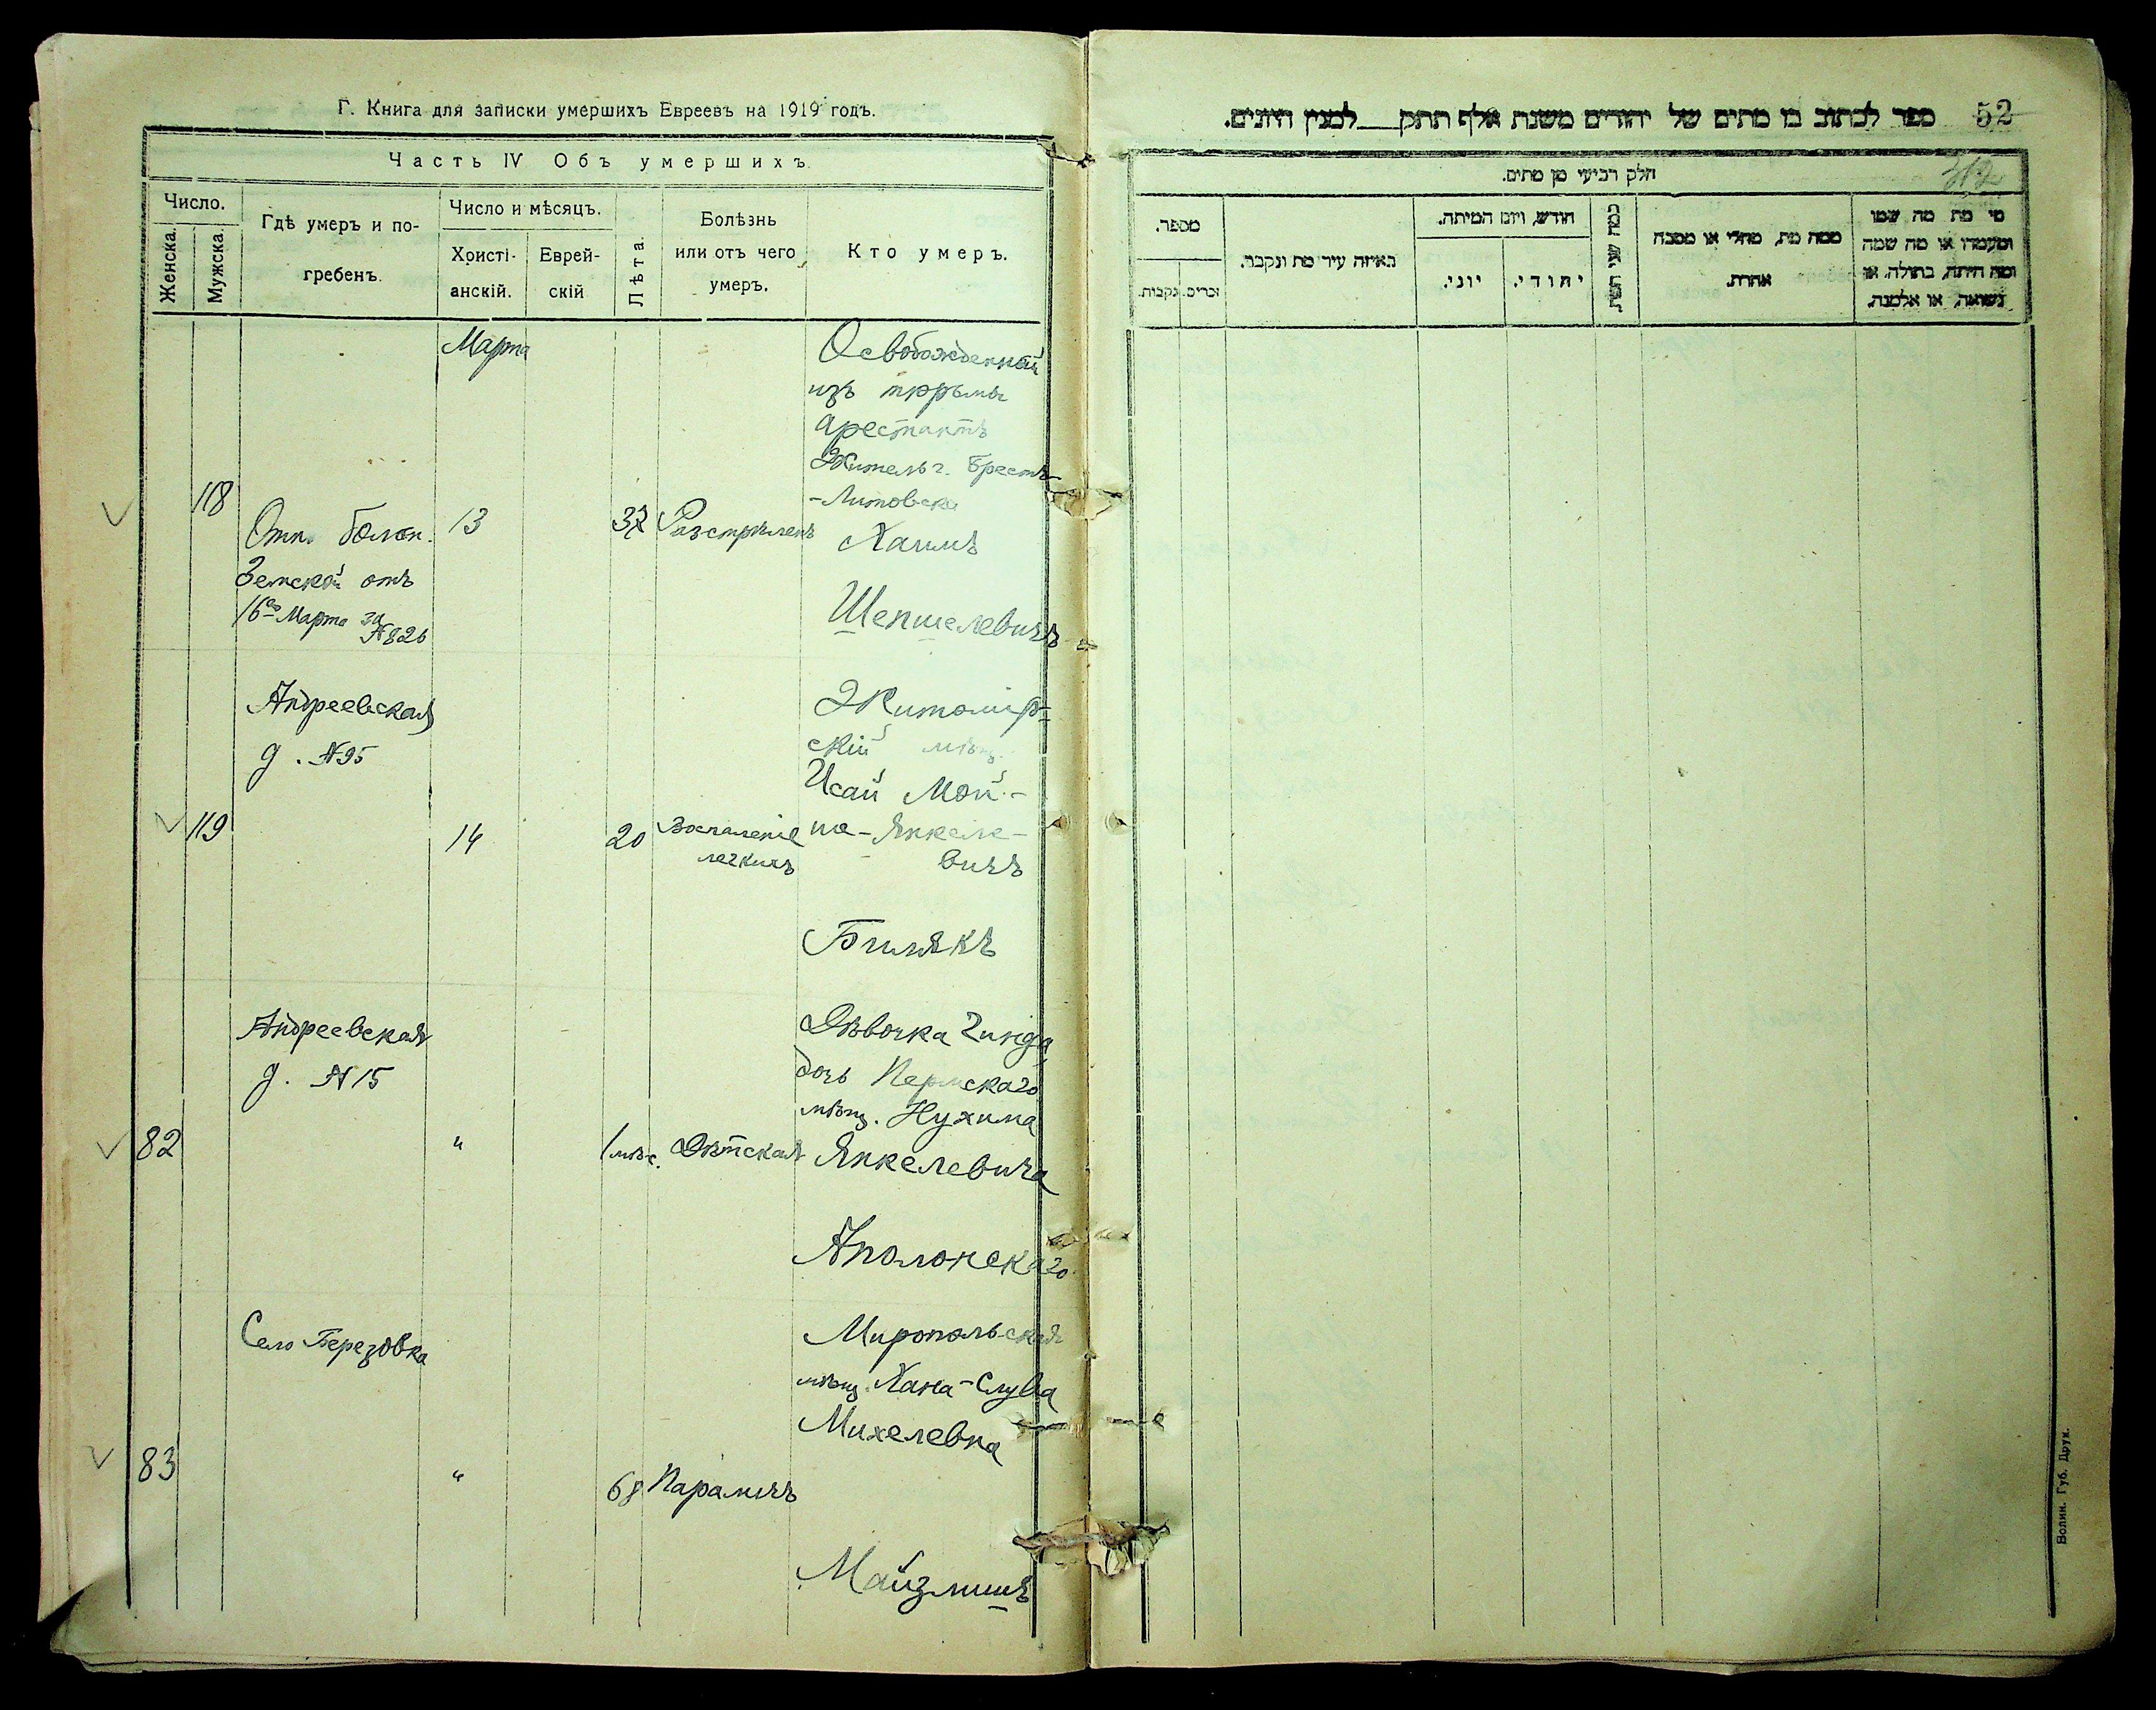 Г. Книга для записки умершихъ Евреевъ на 1919 годъ.
Часть IV Объ умершихъ.
Число.
Женска.
Мужска.
Гдѣ умеръ и по-
гребенъ.
Число и мѣсяцъ.
Христі-
анскій.
Еврей-
скій
Лѣта.
Болѣзнь
или отъ чего
умеръ.
Кто умеръ.
Марта
118
Отн. болън.
Земской отъ
16го Марта за
№826
13
37
Разстрѣленъ
Освобожденный
изъ тюрьмы
арестантъ
Житель г. Брестъ-
-Литовска
Хаимъ
Шепшелевичъ
119
Андреевская
д. №95
14
20
Воспаленіе
легкихъ
Житомір-
скій мѣщ.
Исай Мой-
ше-Янкеле-
вичъ
Билякъ
82
Андреевская
д. №15
"
1 мѣс.
Дѣтская
Дѣвочка
дочь Пермскаго
мѣщ. Нухима
Янкелевича
Аполонскаго
83
Село Березовка
"
68
Параличъ
Миропольская
мѣщ. Хана-Слува
Михелевна
Майзлишъ
ספר לכתוב בו מתים של יהודים משנת אלף תתק___למנין היונים.
52
חלק רביעי מן מתים.
מספר.
נקבות.
זכרים.
באיזה עיר מת ונקבר.
חודש, ויום המיתה.
יוני.
יהודי.
כמה שני המת
ממה מת, מחלי או מסבה
אחרת.
מי מת מה שמו
ומעמדו או מה שמה
ומה היתה, בתולה, או
נשואה, או אלמנה.
Волин. Губ. Друк.